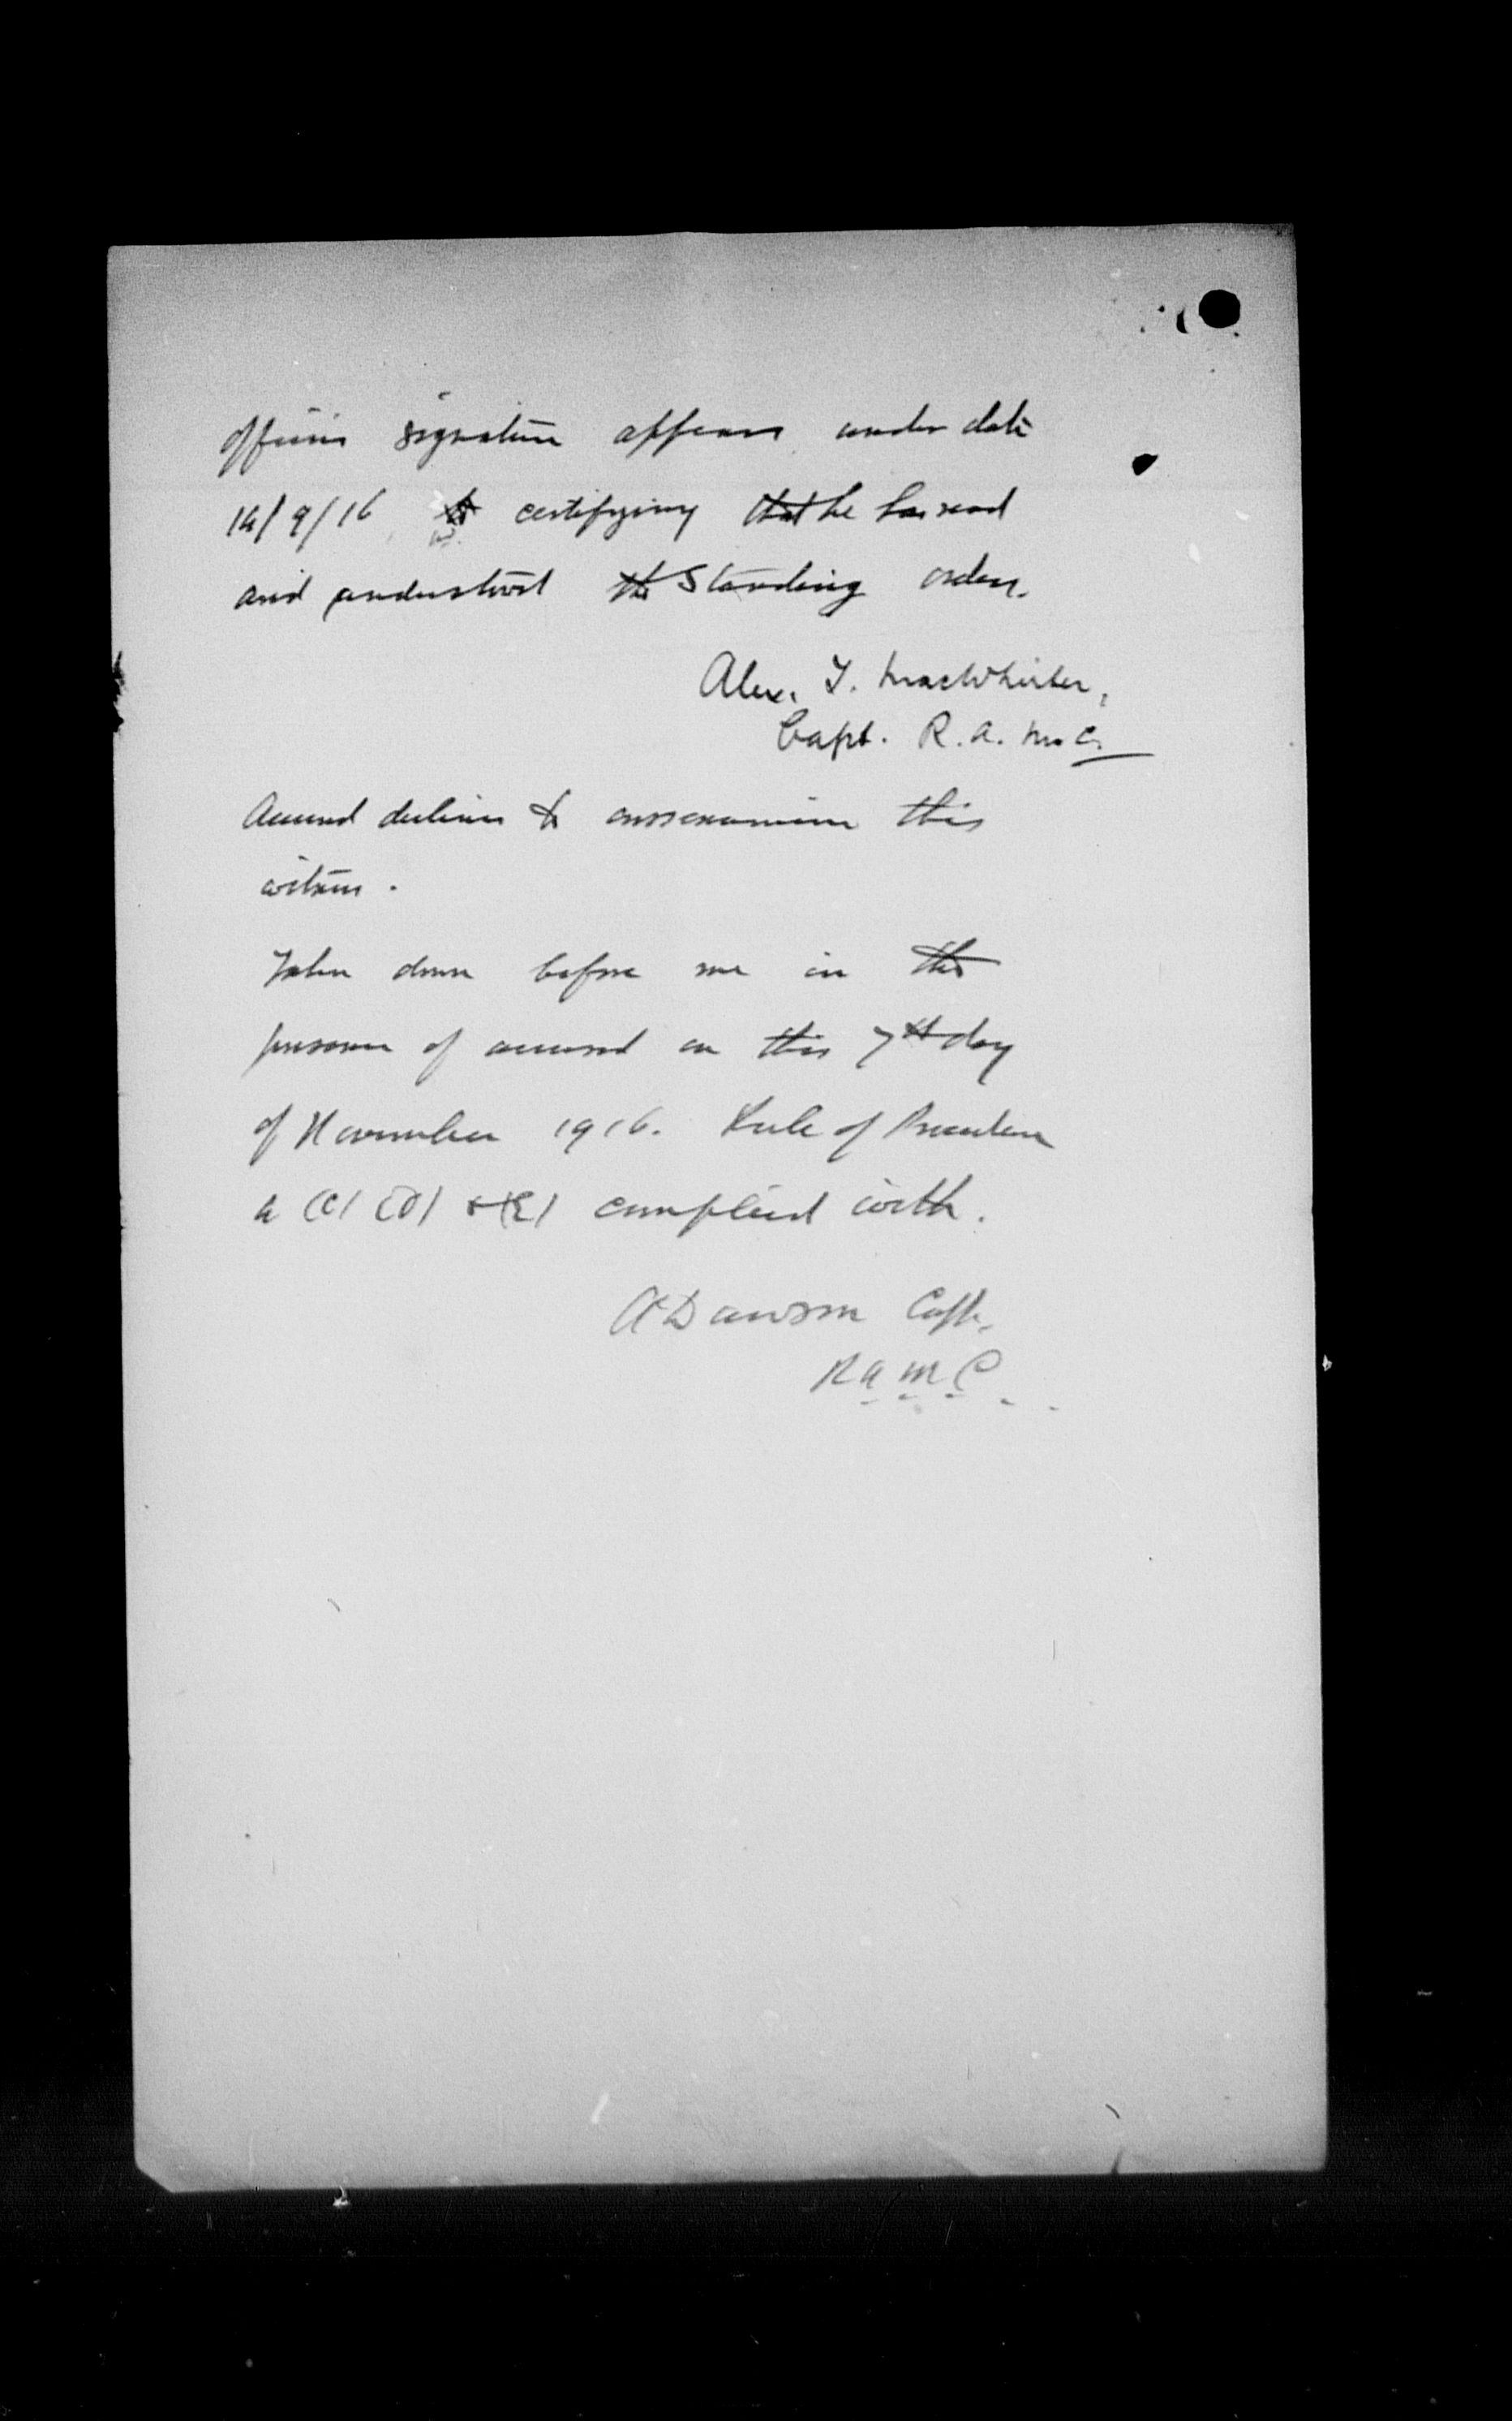 officers signature appears under date
14/9/16 certifying that he has read
and understood the Standing orders.
Alex. T. MacWhirter,
Capt. R.A.M.C.
Accused declines to crossexamine this
witness.
Taken down before me in the
presence of accused on this 7th day
of November 1916. Rule of Procedure
4 (C) (D) & (E) complied with.
A Dawson Capt.
R A M C